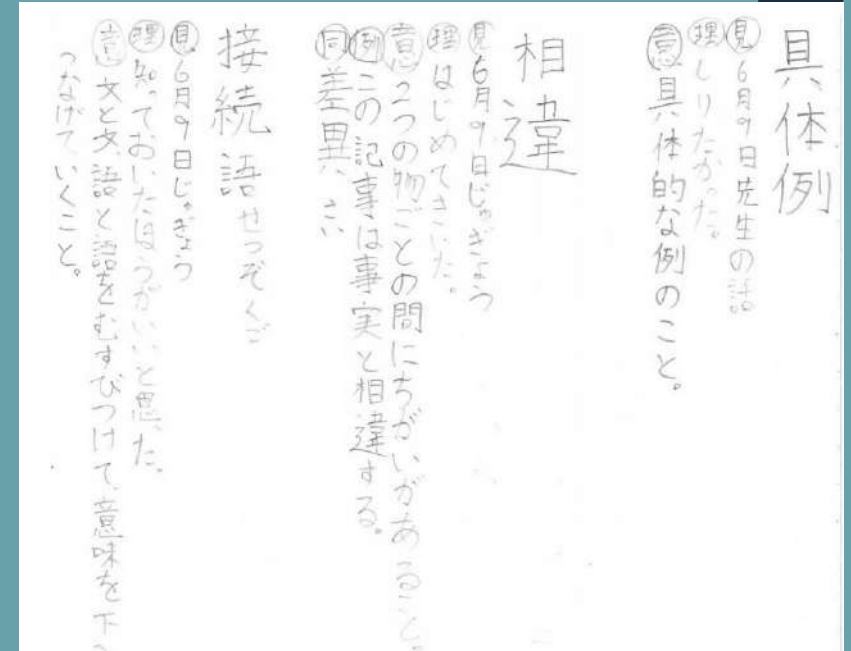 具体例
見 6月9日先生の話
理 しりたかった。
意 具体的な例のこと。
相違
見 6月9日じゅぎょう
理 はじめてきいた。
意 2つの物ごとの間にちがいがあること。
例 この記事は事実と相違する。
同 差異 さい
接続語 せつぞくご
見 6月9日じゅぎょう
理 知っておいたほうがいいと思った。
意 文と文、語と語をむすびつけて、意味を下へ
つなげていくこと。